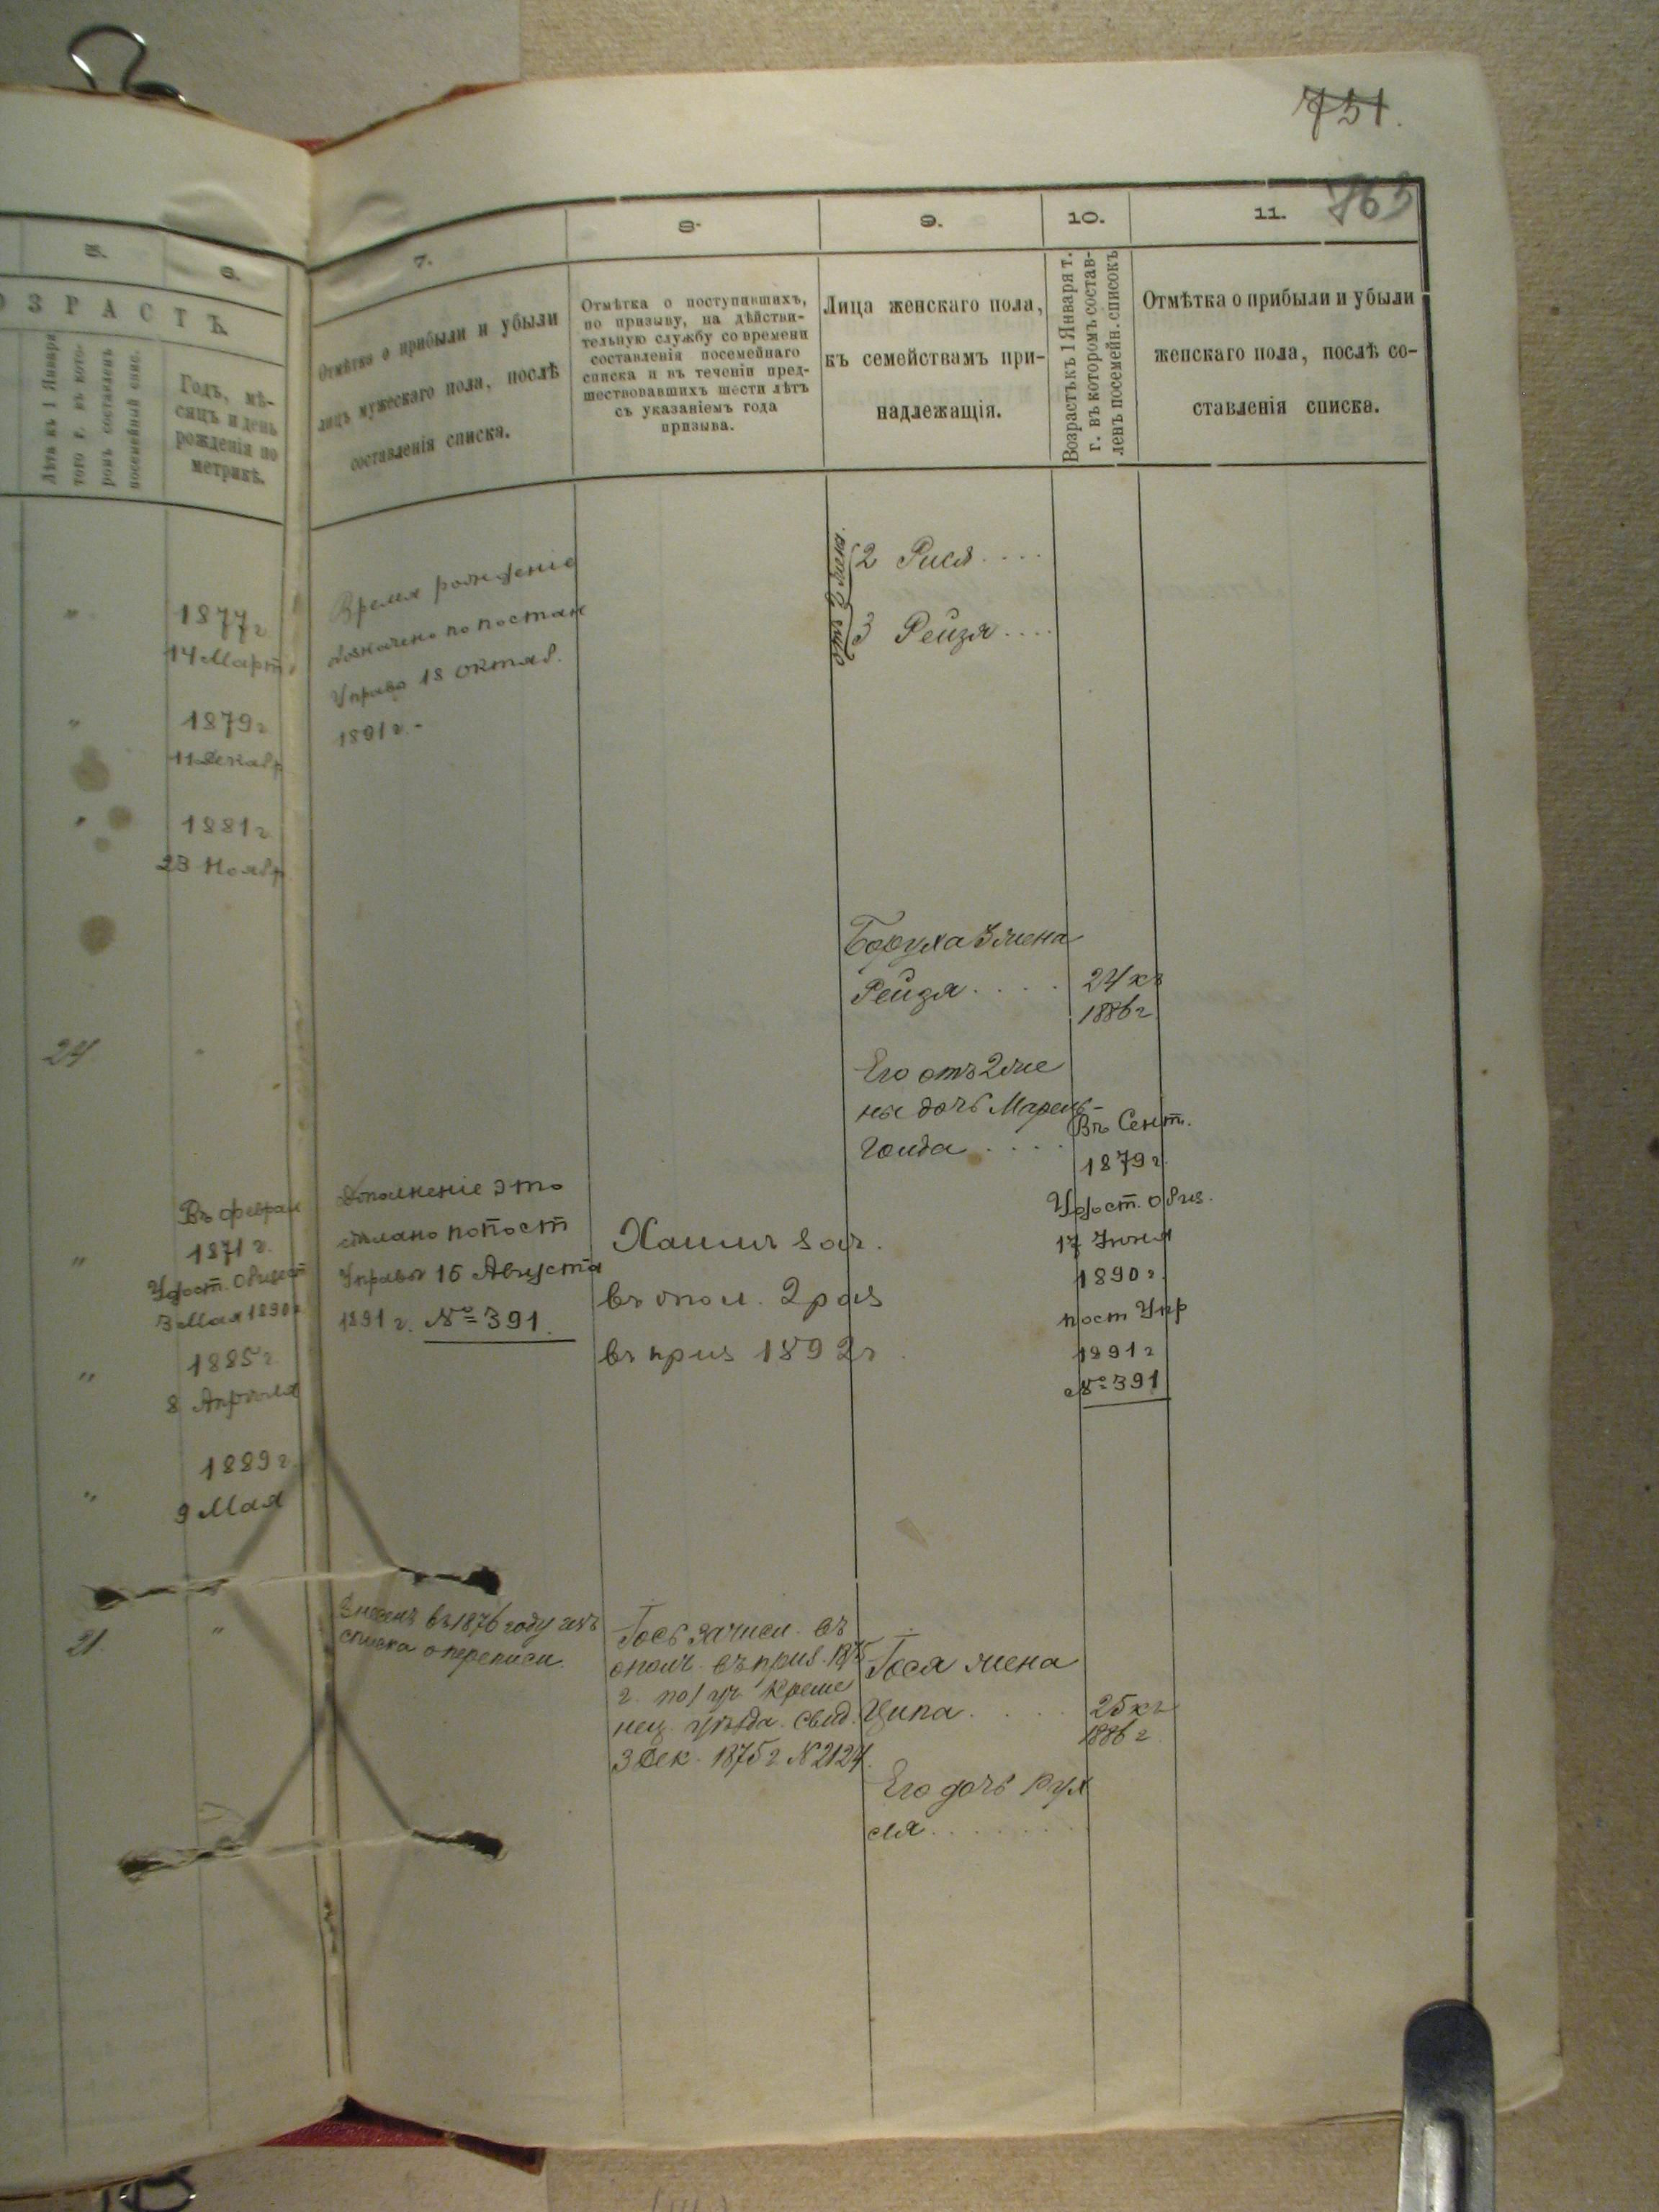 751.
763
5.
6.
7.
8.
9.
10.
11.
ОЗРАСТЪ.
Лѣта къ 1 Января
того г. въ кото-
ромъ составленъ
посемейный спис.
Годъ, мѣ-
сяцъ и день
рожденія по
метрикѣ.
Отмѣтка о прибыли и убыли
лицъ мужескаго пола, послѣ
составленія списка.
Отмѣтка о поступившихъ,
по призыву, на дѣйстви-
тельную службу со времени
составленія посемейнаго
списка и въ теченіи пред-
шествовавшихъ шести лѣтъ
съ указаніемъ года
призыва.
Лица женскаго пола,
къ семействамъ при-
надлежащія.
Возрастъ къ 1 Января т.
г. въ которомъ состав-
ленъ посемейн. списокъ
Отмѣтка о прибыли и убыли
женскаго пола, послѣ со-
ставленія списка.
"
1877 г
14 Март
"
1879 г
11 Декабр
"
1881 г
23 Ноябр.
Время рожденіе
обозначено по постан
Управы 18 октяб.
1891 г. -
отъ 2 жены
2 Рися....
3 Рейзя....
24
"
Рейзя....
24 къ
1886 г
Его отъ 2 же
ны дочь
Голда....
Въ Сент.
1879 г.
Удост. общ.
17 Іюня
1890 г.
пост Упр
1891 г
№ 391
"
Въ феврал
1871 г.
Удост. Общест
3 Мая 1890 г
Дополненіе это
сдѣлано по пост
Управы 16 Августа
1891 г. № 391.
Хаимъ зач.
въ опол. 2 раз
въ приз 1892 г.
"
1885 г
8 Апрѣля
"
1889 г.
9 Мая
21.
"
Внесенъ въ 1876 году изъ
списка о переписи.
Гось зачисл. въ
опол. въ приз. 1875
г. по 1 уч Креме
нец. уѣзда. Свид.
3 Дек. 1875 г № 2124.
Гося жена
Ципа....
25 къ
1886 г
Его дочь Рух
ля.......